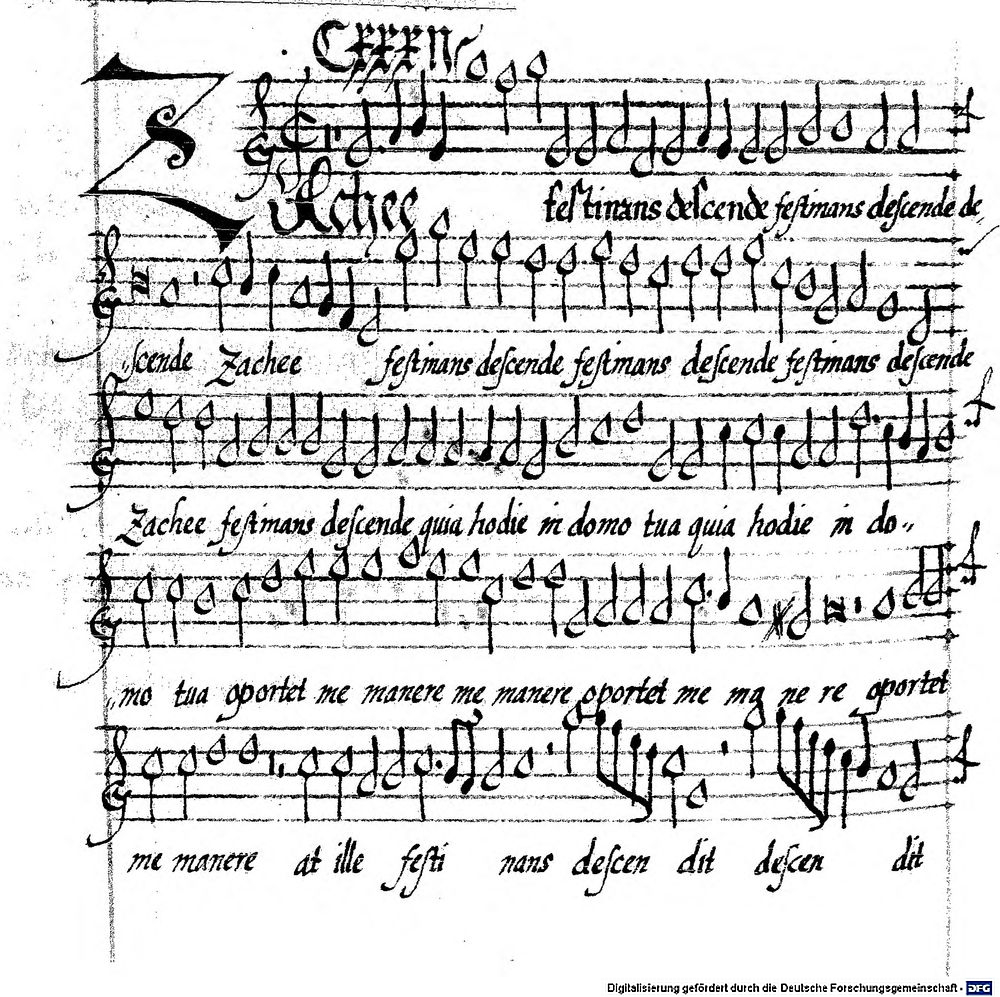 ZAchee festinans descende festinans descende de,
,,scende Zachee festinans descende festinans descende festinans descende
Zachee festinans descende quia hodie in domo tua quia hodie in do,,
,,mo tua oportet me manere me manere oportet me ma ne re oportet
me manere at ille festi nans descen dit descen dit
Digitalisierung gefördert durch die Deutsche Forschungsgemeinschaft - DFG